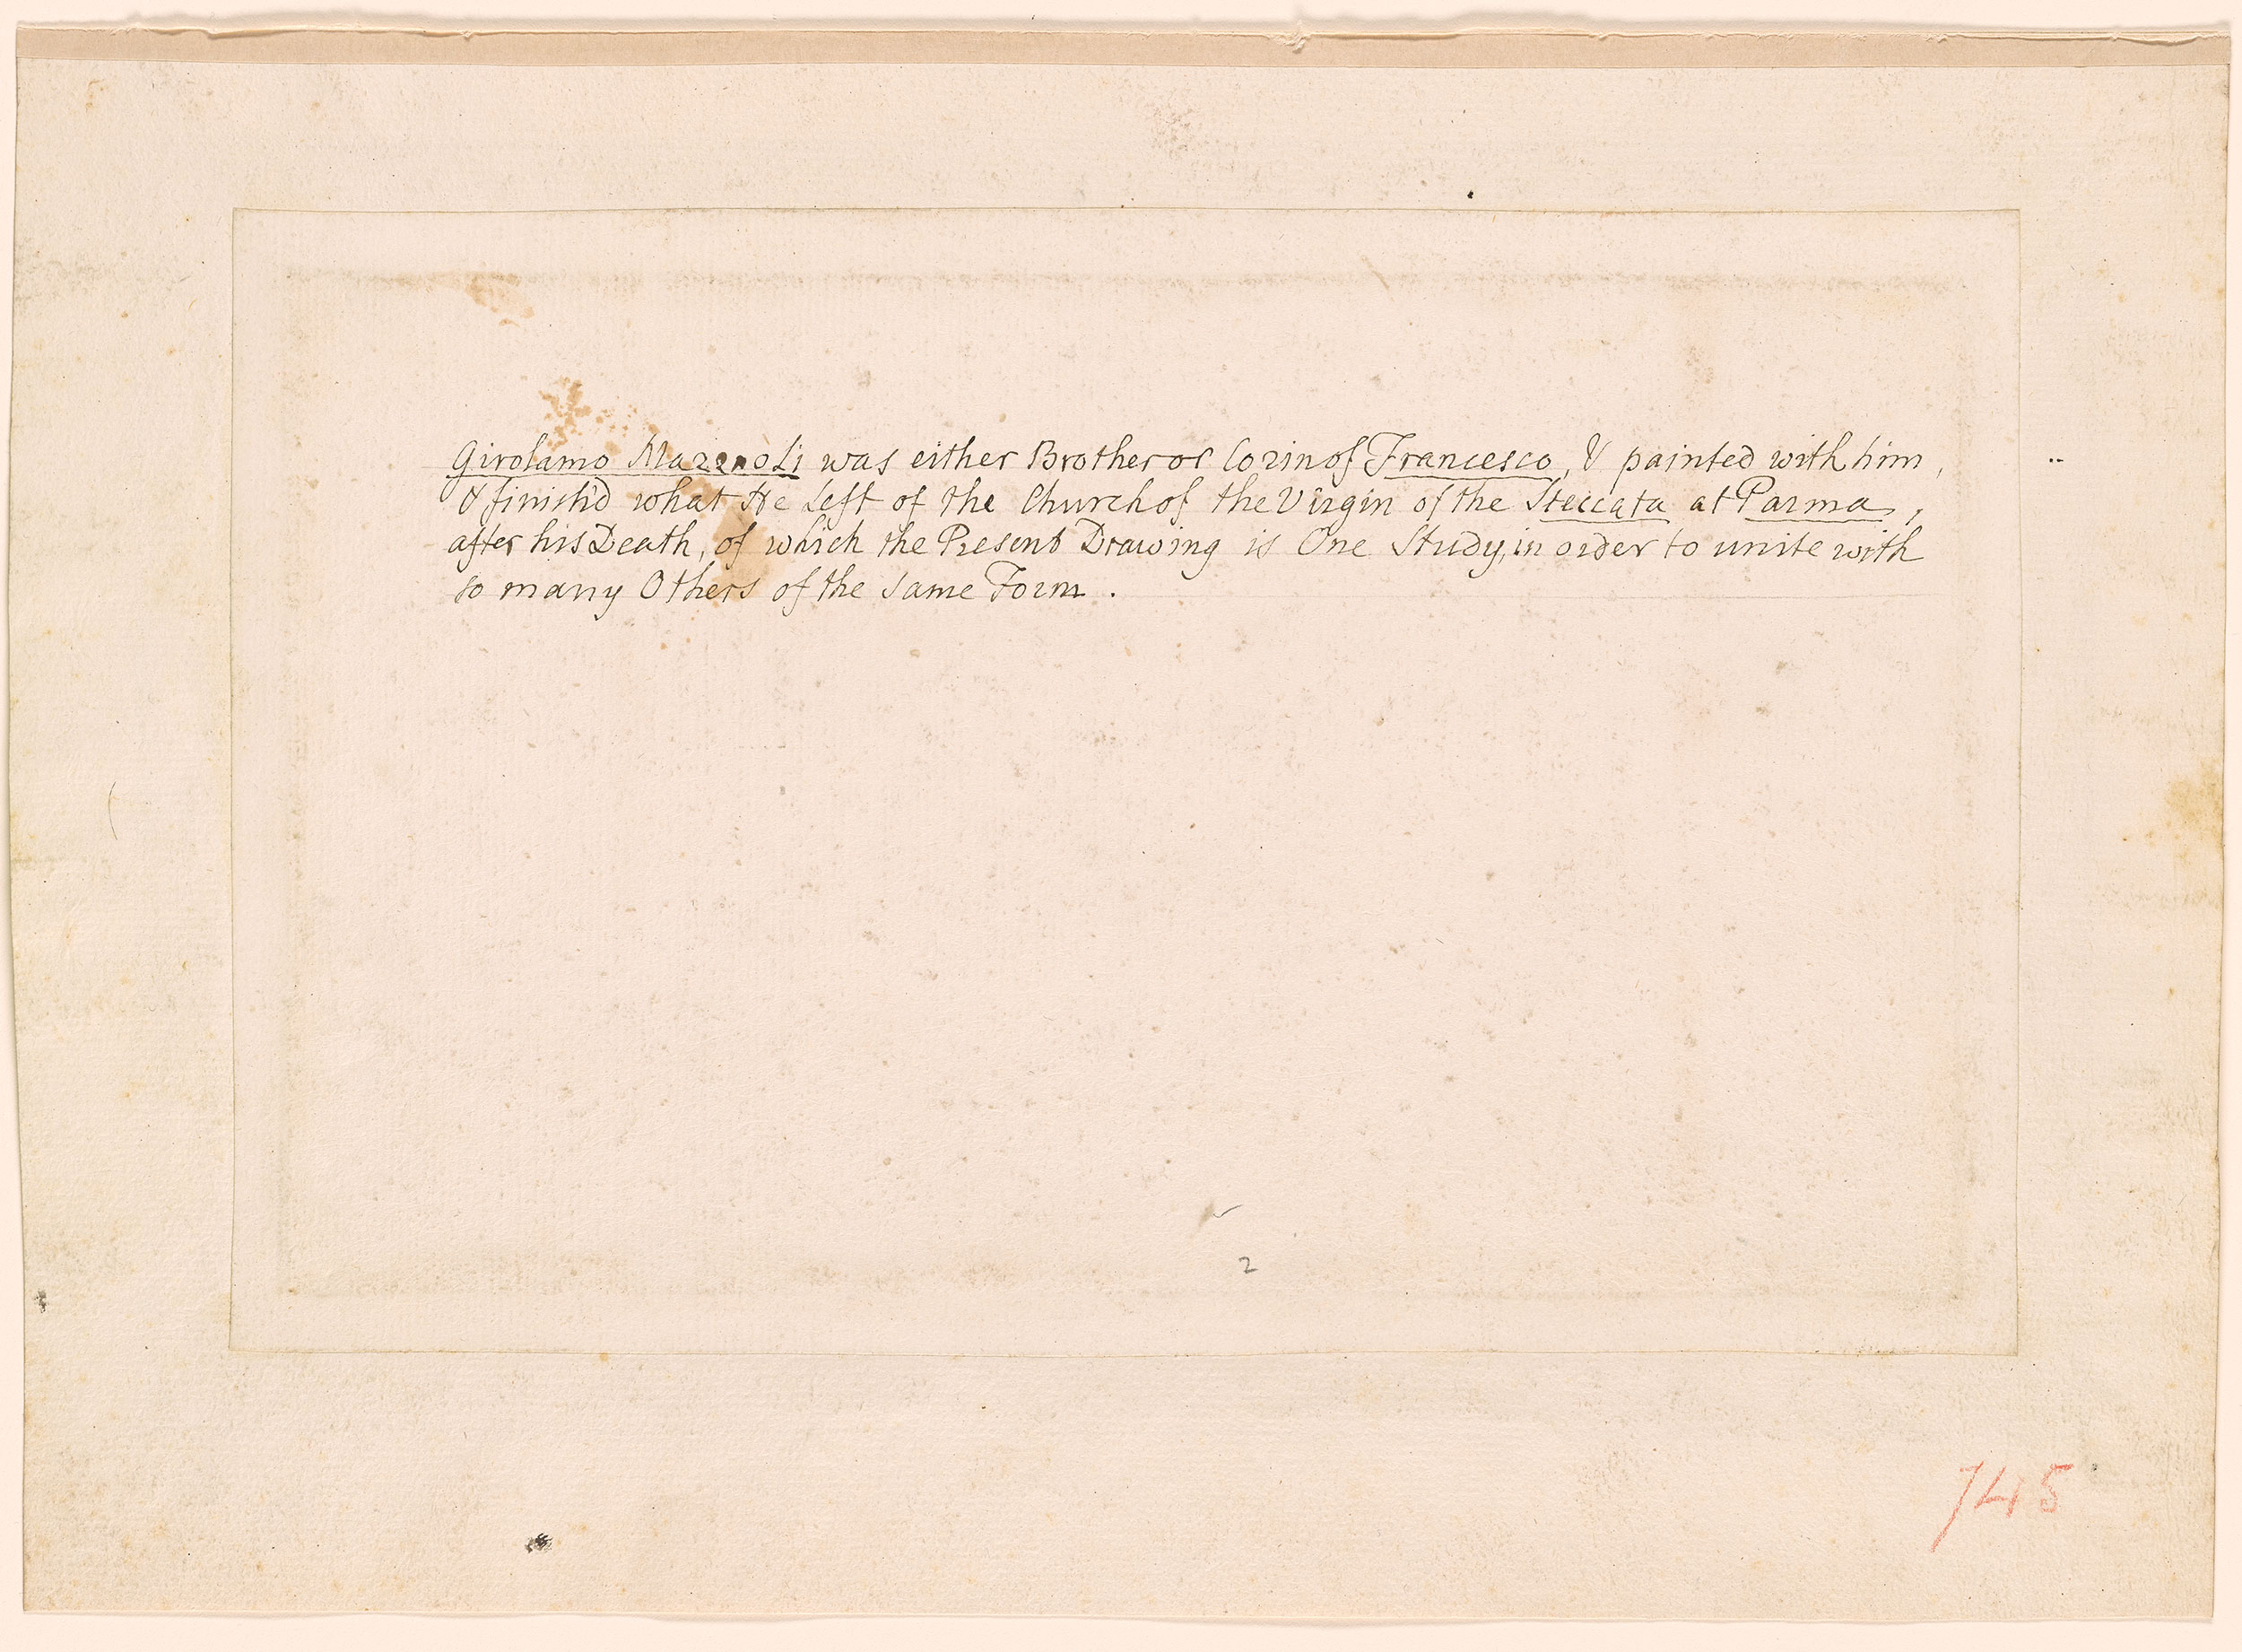 Girolamo Mazzuoli was either Brother or Cozin of Francesco, & painted with him,
& finish'd what He Left of the Church of the Virgin of the Steccata at Parma,
after his Death, of which the Present Drawing is One Study, in order to unite with
so many Others of the same Form.
2
745